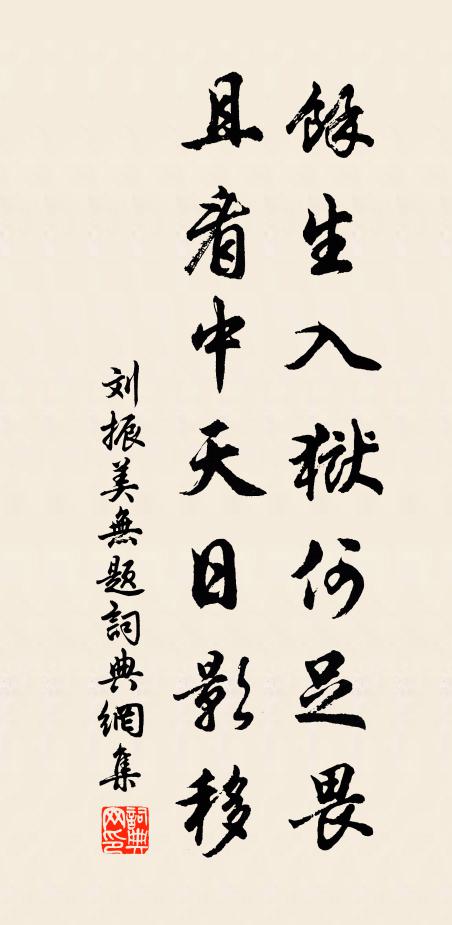 餘生入獄何足畏
且看中天日影移
刘振美無题詞典網集
詞典网印